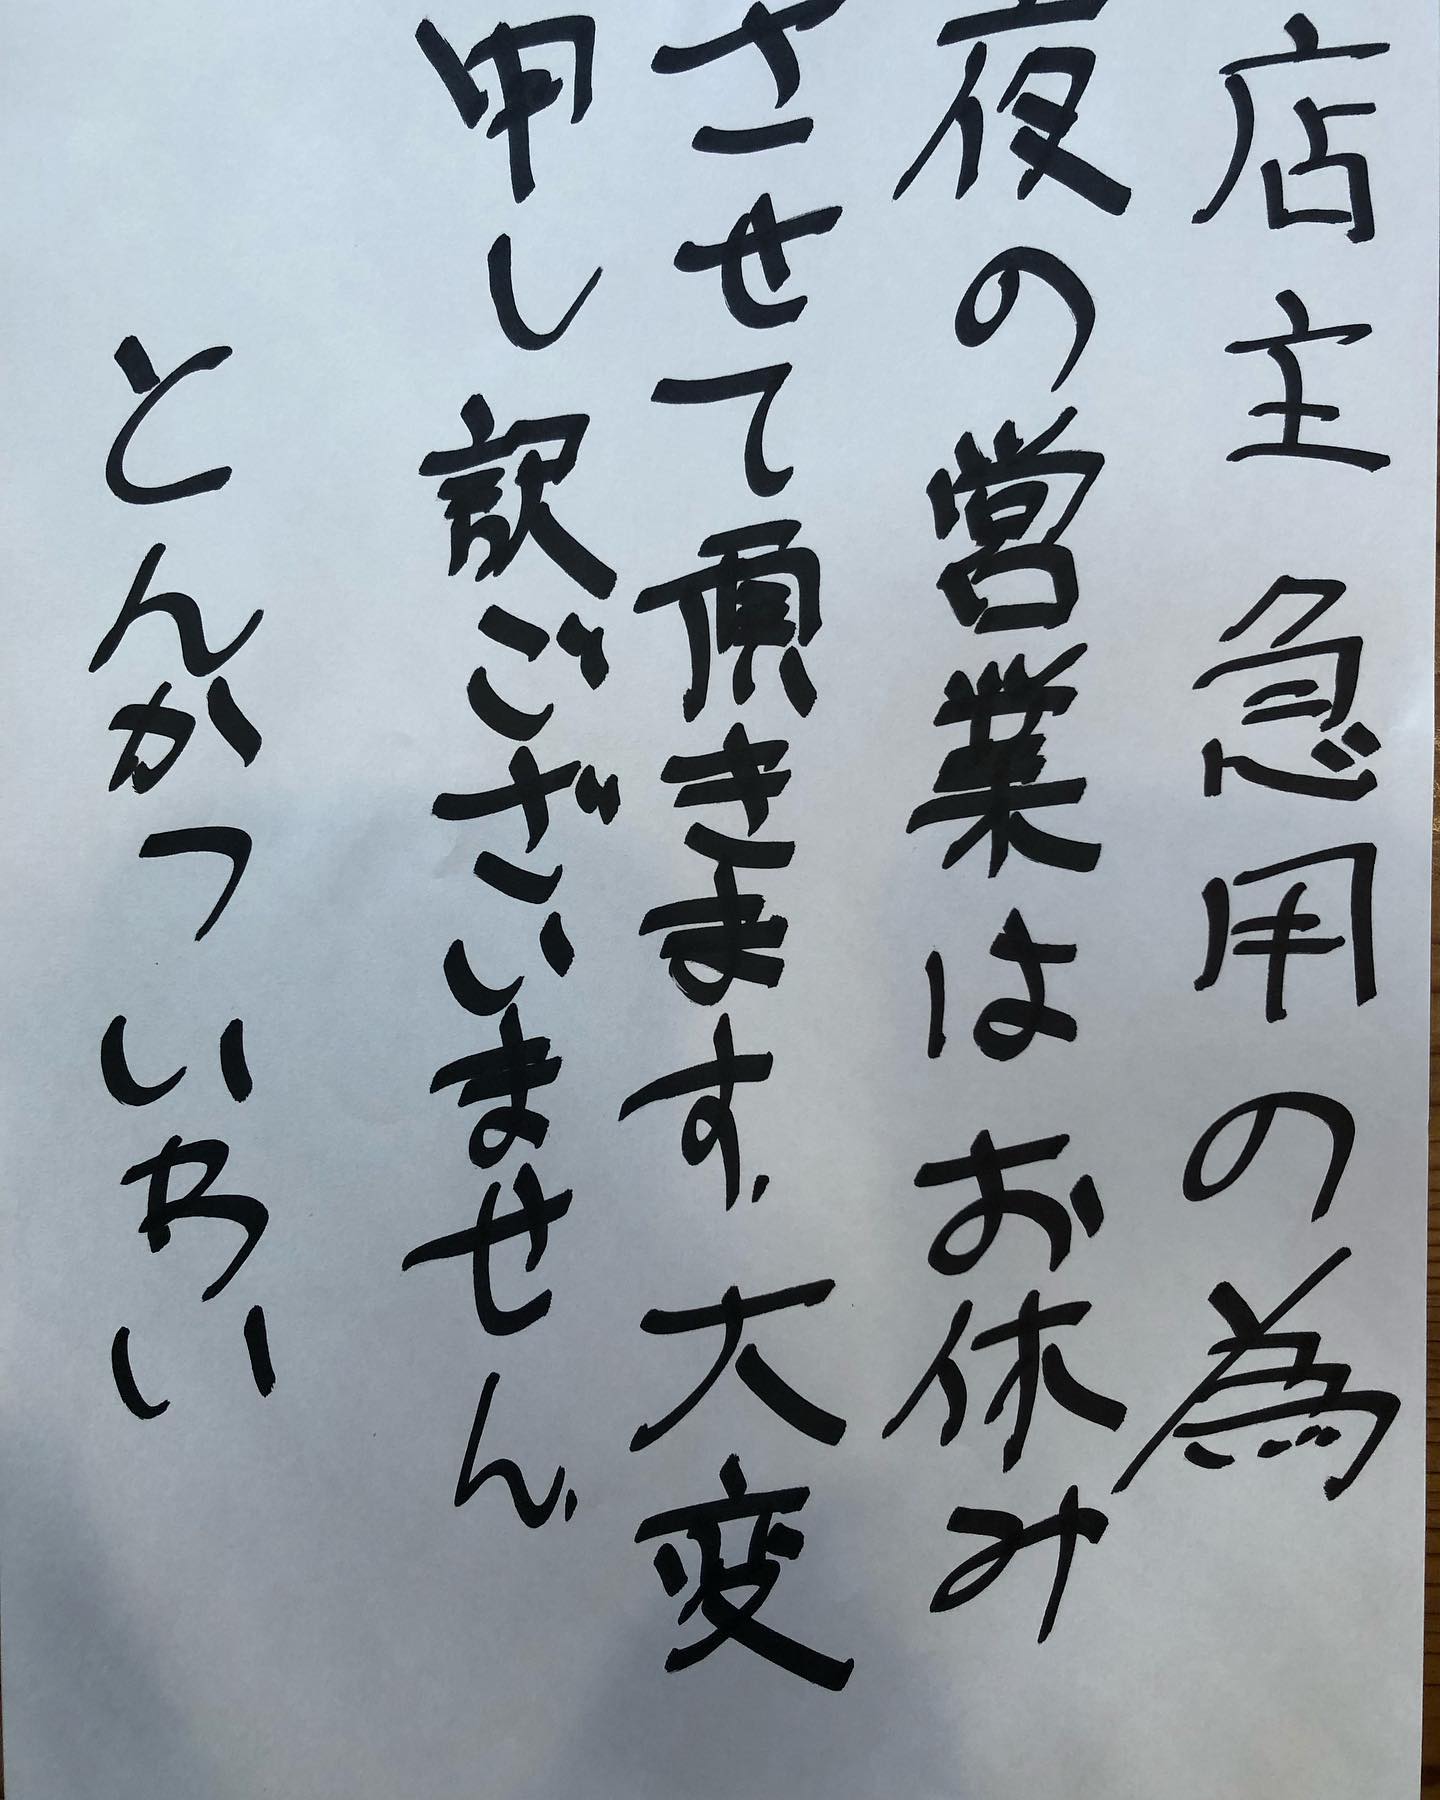 店主急用の為
夜の営業はお休み
させて頂きます。大変
申し訳ございません。
とんかついわい